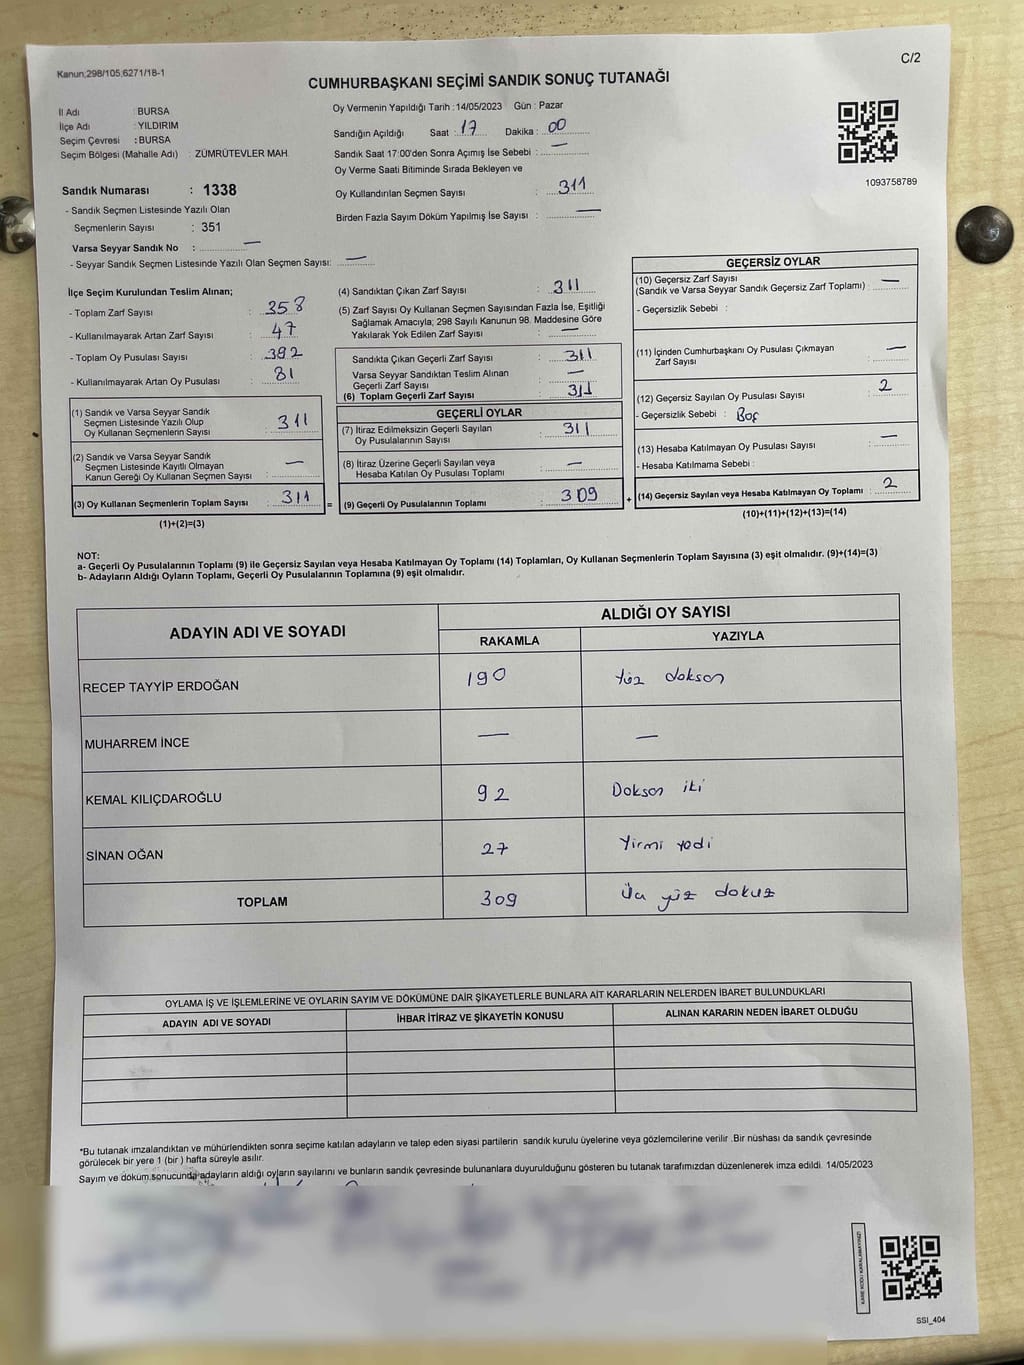 Kanun;298/105;6271/18-1
C/2
CUMHURBAŞKANI SEÇİMİ SANDIK SONUÇ TUTANAĞI
İl Adı : BURSA
İlçe Adı : YILDIRIM
Seçim Çevresi : BURSA
Seçim Bölgesi (Mahalle Adı) : ZÜMRÜTEVLER MAH.
Sandık Numarası : 1338
- Sandık Seçmen Listesinde Yazılı Olan
Seçmenlerin Sayısı : 351
Varsa Seyyar Sandık No : —
- Seyyar Sandık Seçmen Listesinde Yazılı Olan Seçmen Sayısı: —
Oy Vermenin Yapıldığı Tarih :14/05/2023 Gün : Pazar
Sandığın Açıldığı Saat : 17 Dakika : 00
Sandık Saat 17:00'den Sonra Açımış İse Sebebi : —
Oy Verme Saati Bitiminde Sırada Bekleyen ve
Oy Kullandırılan Seçmen Sayısı : 311
Birden Fazla Sayım Döküm Yapılmış İse Sayısı : —
1093758789
İlçe Seçim Kurulundan Teslim Alınan;
- Toplam Zarf Sayısı : 358
- Kullanılmayarak Artan Zarf Sayısı : 47
- Toplam Oy Pusulası Sayısı : 392
- Kullanılmayarak Artan Oy Pusulası : 81
(1) Sandık ve Varsa Seyyar Sandık
Seçmen Listesinde Yazılı Olup
Oy Kullanan Seçmenlerin Sayısı : 311
(2) Sandık ve Varsa Seyyar Sandık
Seçmen Listesinde Kayıtlı Olmayan
Kanun Gereği Oy Kullanan Seçmen Sayısı : —
(3) Oy Kullanan Seçmenlerin Toplam Sayısı : 311
(1)+(2)=(3)
=
(4) Sandıktan Çıkan Zarf Sayısı : 311
(5) Zarf Sayısı Oy Kullanan Seçmen Sayısından Fazla İse, Eşitliği
Sağlamak Amacıyla; 298 Sayılı Kanunun 98. Maddesine Göre
Yakılarak Yok Edilen Zarf Sayısı : —
Sandıkta Çıkan Geçerli Zarf Sayısı : 311
Varsa Seyyar Sandıktan Teslim Alınan
Geçerli Zarf Sayısı : —
(6) Toplam Geçerli Zarf Sayısı : 311
GEÇERLİ OYLAR
(7) İtiraz Edilmeksizin Geçerli Sayılan
Oy Pusulalarının Sayısı : 311
(8) İtiraz Üzerine Geçerli Sayılan veya
Hesaba Katılan Oy Pusulası Toplamı : —
(9) Geçerli Oy Pusulalarının Toplamı : 309
+
GEÇERSİZ OYLAR
(10) Geçersiz Zarf Sayısı
(Sandık ve Varsa Seyyar Sandık Geçersiz Zarf Toplamı) : —
- Geçersizlik Sebebi :
(11) İçinden Cumhurbaşkanı Oy Pusulası Çıkmayan
Zarf Sayısı : —
(12) Geçersiz Sayılan Oy Pusulası Sayısı : 2
- Geçersizlik Sebebi : Boş
(13) Hesaba Katılmayan Oy Pusulası Sayısı : —
- Hesaba Katılmama Sebebi :
(14) Geçersiz Sayılan veya Hesaba Katılmayan Oy Toplamı : 2
(10)+(11)+(12)+(13)=(14)
NOT:
a- Geçerli Oy Pusulalarının Toplamı (9) ile Geçersiz Sayılan veya Hesaba Katılmayan Oy Toplamı (14) Toplamları, Oy Kullanan Seçmenlerin Toplam Sayısına (3) eşit olmalıdır. (9)+(14)=(3)
b- Adayların Aldığı Oyların Toplamı, Geçerli Oy Pusulalarının Toplamına (9) eşit olmalıdır.
ADAYIN ADI VE SOYADI
ALDIĞI OY SAYISI
RAKAMLA YAZIYLA
RECEP TAYYİP ERDOĞAN 190 Yüz doksan
MUHARREM İNCE — —
KEMAL KILIÇDAROĞLU 92 Doksan iki
SİNAN OĞAN 27 Yirmi yedi
TOPLAM 309 Üç yüz dokuz
OYLAMA İŞ VE İŞLEMLERİNE VE OYLARIN SAYIM VE DÖKÜMÜNE DAİR ŞİKAYETLERLE BUNLARA AİT KARARLARIN NELERDEN İBARET BULUNDUKLARI
ADAYIN ADI VE SOYADI İHBAR İTİRAZ VE ŞİKAYETİN KONUSU ALINAN KARARIN NEDEN İBARET OLDUĞU
*Bu tutanak imzalandıktan ve mühürlendikten sonra seçime katılan adayların ve talep eden siyasi partilerin sandık kurulu üyelerine veya gözlemcilerine verilir .Bir nüshası da sandık çevresinde
görülecek bir yere 1 (bir ) hafta süreyle asılır.
Sayım ve döküm sonucunda adayların aldığı oyların sayılarını ve bunların sandık çevresinde bulunanlara duyurulduğunu gösteren bu tutanak tarafımızdan düzenlenerek imza edildi. 14/05/2023
KARE KODU KARALAMAYINIZ!
SSI_404